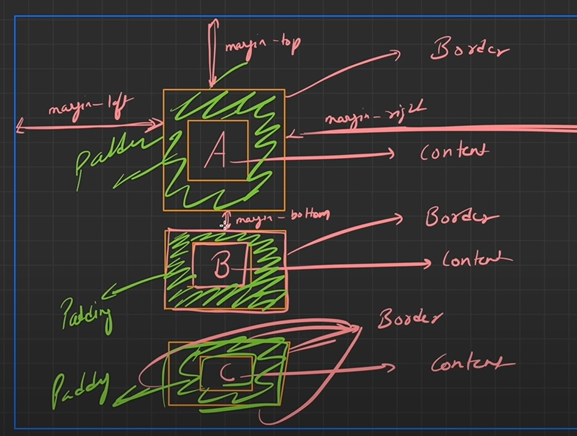 margin-top
Border
margin-left
margin-right
A
Content
margin-bottom
Border
B
Content
Padding
Border
C
Content
Paddy